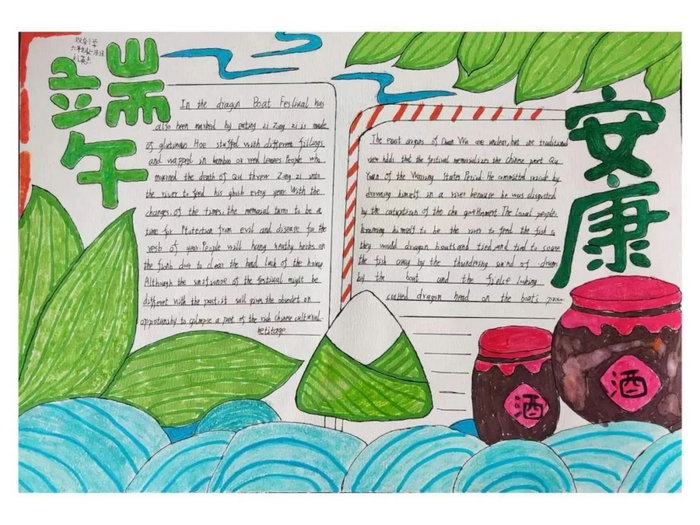 端午
安康
In the dragon Boat Festival has
also been marked by eating zi Zong zi is made
of glutinous Hoe stuffed with different fillings
and wapped in bamboo or reed leaves People who
mourned the death of Qu threw Zong zi into
the river to feed his ghost every year With the
changes of the times, the memorial turn to be a
time for Protection from evil and disease for the
rest of year. People will hang healthy herbs on
the front door to clear the bad luck of the house
Although the significance of the festival might be
different with the past, it still gives the observer an
opportunity to glimpse a part of the rich Chinese cultural
heritage
The exact origins of Duan Wu are unclear, but one traditional
view holds that the festival memorializes the Chinese poet Qu
Yuan of the Warring States Period. He committed suicide by
drowning himself in a river because he was disgusted
by the corruption of the chu government. The local people,
knowing himself to be the river to feed the fish
they would dragon boats and tried and tied to scare
the fish away by the thundering sound of drums
by the boat and the fierce looking
carved dragon head on the boat's prow
酒
酒